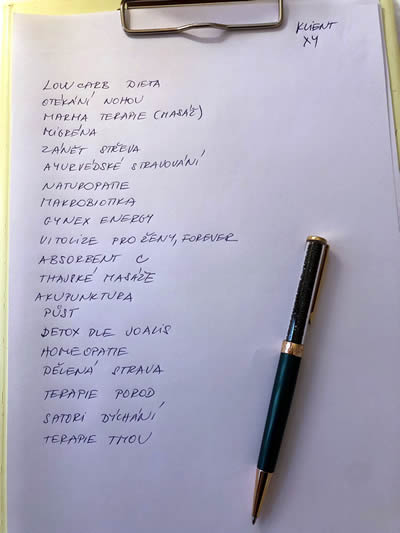 KLIENT
XY
LOW CARB DIETA
OTÉKÁNÍ NOHOU
MARMA TERAPIE (MASÁŽ)
MIGRÉNA
ZÁNĚT STŘEVA
AYURVÉDSKÉ STRAVOVÁNÍ
NATUROPATIE
MAKROBIOTIKA
GYNEX ENERGY
VITOLIZE PRO ŽENY, FOREVER
ABSORBENT C
THAJSKÉ MASÁŽE
AKUPUNKTURA
PŮST
DETOX DLE JOALIS
HOMEOPATIE
DĚLENÁ STRAVA
TERAPIE POROD
SATORI DÝCHÁNÍ
TERAPIE TMOU